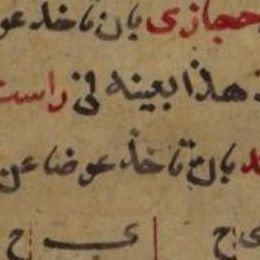 حجازى بان تاخذ عو
هذا بعينه فى راست
بان تاخذ عوضا عن
ح ى ح